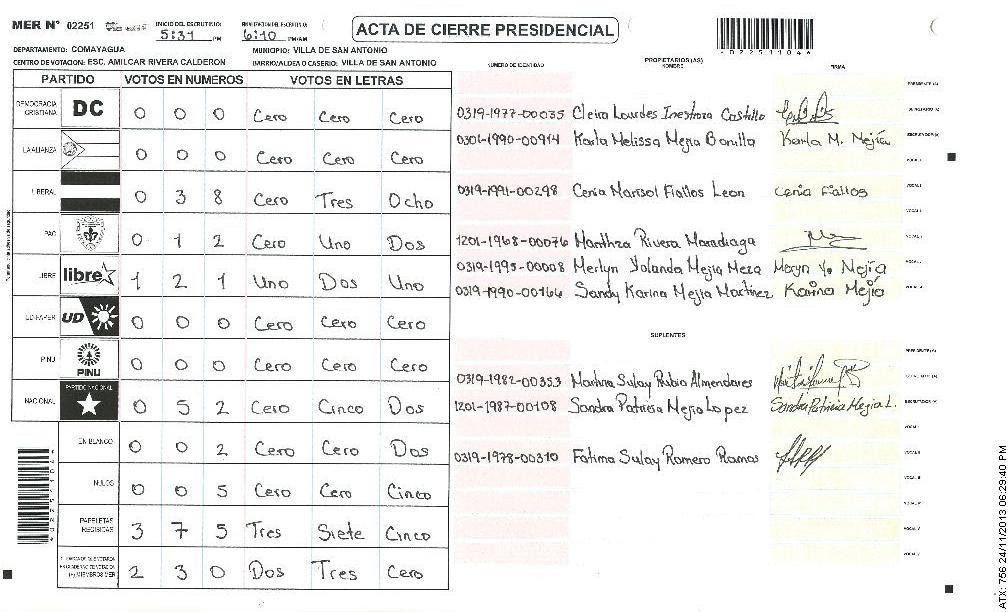 MER N° 02251 INICIO DEL ESCRUTINIO: 5:31 PM FINALIZACION DEL ESCRUTINIO: 6:10 PM/AM ACTA DE CIERRE PRESIDENCIAL
DEPARTAMENTO: COMAYAGUA MUNICIPIO: VILLA DE SAN ANTONIO
CENTRO DE VOTACION: ESC. AMILCAR RIVERA CALDERON BARRIO/ALDEA O CASERIO: VILLA DE SAN ANTONIO
*02251104*
PARTIDO VOTOS EN NUMEROS VOTOS EN LETRAS
DEMOCRACIA CRISTIANA DC 0 0 0 Cero Cero Cero
LA ALIANZA 0 0 0 Cero Cero Cero
LIBERAL 0 3 8 Cero Tres Ocho
PAC 0 1 2 Cero Uno Dos
LIBRE libre 1 2 1 Uno Dos Uno
UD-FAPER UD 0 0 0 Cero Cero Cero
PINU PINU 0 0 0 Cero Cero Cero
NACIONAL PARTIDO NACIONAL 0 5 2 Cero Cinco Dos
EN BLANCO 0 0 2 Cero Cero Dos
NULOS 0 0 5 Cero Cero Cinco
PAPELETAS RECIBIDAS 3 7 5 Tres Siete Cinco
MIEMBROS MER 2 3 0 Dos Tres Cero
NUMERO DE IDENTIDAD PROPIETARIOS (AS) NOMBRE FIRMA
PRESIDENTE (A)
0319-1977-00035 Cleira Lourdes Inestroza Castillo
0301-1990-00914 Karla Melissa Mejia Bonilla Karla M. Mejía
0319-1991-00298 Cenia Marisol Fiallos Leon Cenia Fiallos
1201-1968-00076 Marthza Rivera Maradiaga
0319-1995-00008 Merlyn Yolanda Mejia Meza Merlyn Yo. Mejía
0319-1990-00166 Sandy Karina Mejia Martinez Karina Mejia
SUPLENTES
PRESIDENTE (A)
0319-1982-00353 Martina Sulay Rubio Almendares
1201-1987-00108 Sandra Patricia Mejia Lopez Sandra Patricia Mejia L.
0319-1978-00310 Fatima Sulay Romero Ramos
ATX: 756 24/11/2013 06:29:40 PM